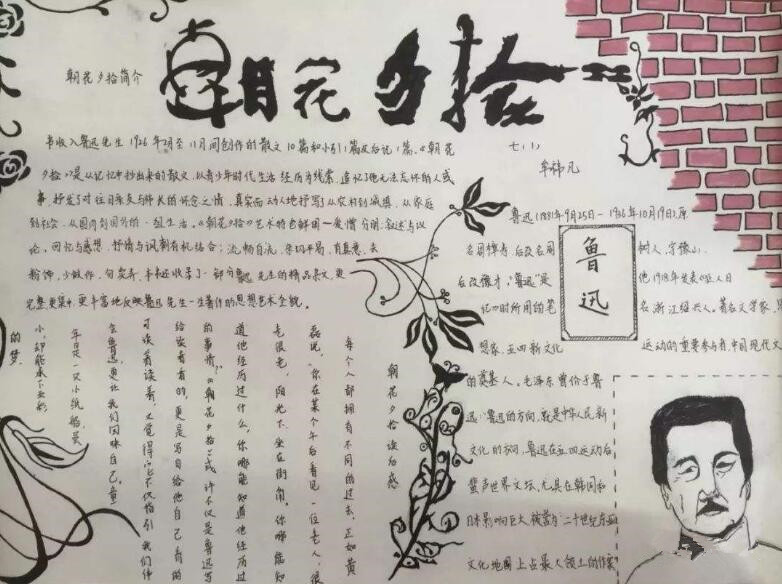 朝花夕拾
朝花夕拾简介
书收入鲁迅先生1926年2月至11月间创作的散文10篇和小引1篇及后记1篇。《朝花
夕拾》是从记忆中抄出来的散文,以青少年时代生活经历为线索,追记了他无法忘怀的人或
事,抒发了对往日亲友与师长的怀念之情,真实而动人地抒写了从农村到城镇,从家庭
到社会,从国内到国外的一组生活。《朝花夕拾》艺术特色鲜明一爱憎分明:叙述与议
论,回忆与感想,抒情与讽刺有机结合;流畅自流,有真意,去
粉饰,少做作,勿卖弄,本书还收录了一部分鲁迅先生的精品杂文,更
完整更集中,更丰富地反映鲁迅先生一生著作的思想艺术全貌。
七(1)
牟祎凡
鲁迅(1881年9月25日-1936年10月19日),原
名周樟寿,后改名周树人,字豫山,
后改豫才,"鲁迅"是他1918年发表《狂人日
记》时所用的笔名,浙江绍兴人。著名文学家,思
想家,五四新文化运动的重要参与者,中国现代文
的奠基人。毛泽东曾价于鲁
迅:"鲁迅的方向,就是中华人民新
文化的方向,鲁迅在五四运动后
蜚声世界文坛,尤其在韩国和
日本影响巨大,被誉为"二十世纪东亚
文化地图上占最大领土的作家
鲁迅
朝花夕拾读后感
每个人都拥有不同的过去,正如黄
磊说:"你在某个午后看见一位老人,很
老很老,阳光下,坐在街角。你哪能知
道他经历过什么,你哪能知道他经历过
的事情。"《朝花夕拾》或许不仅是鲁迅写
给读者看的,更是写自给他自己看的
可读着读着,又觉得它不仅指引我们体
会鲁迅更让我们回味自己童
年是一只小纸船
小却能承下五彩
的梦